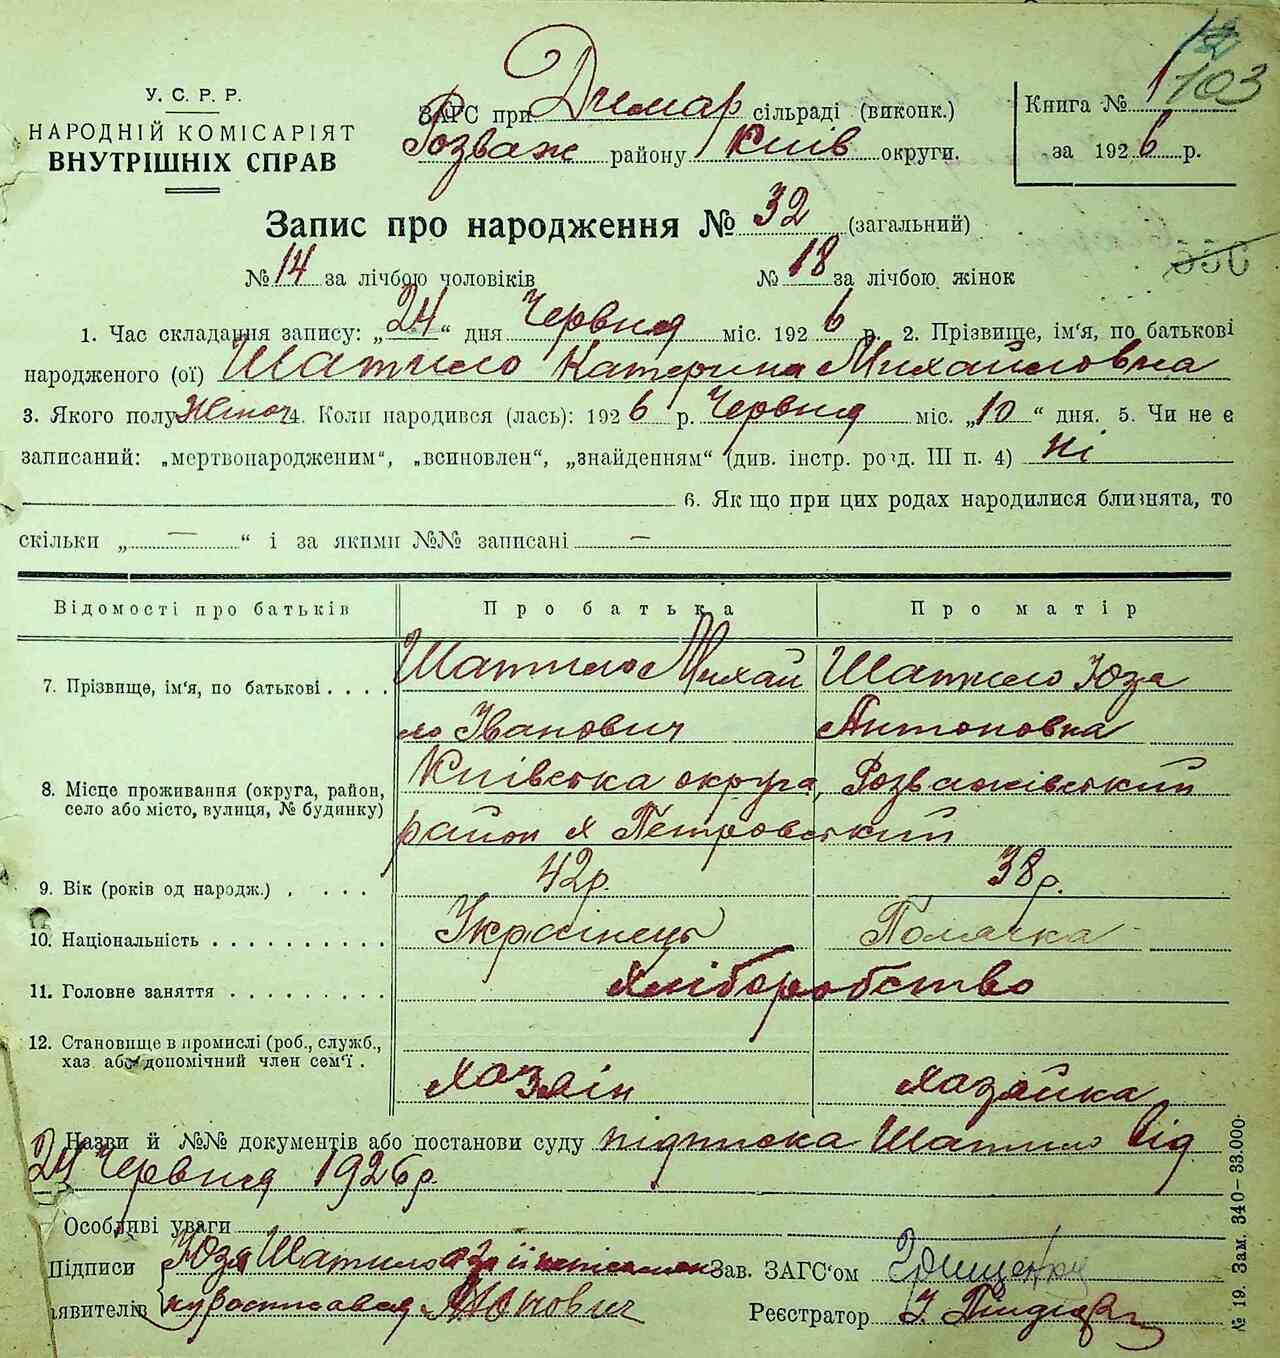 103
У. С. Р. Р.
НАРОДНІЙ КОМІСАРІЯТ
ВНУТРІШНІХ СПРАВ
ЗАГС при Димар сільраді (виконк.)
Розваж району Київ округи.
Книга № 1
за 1926 р.
Запис про народження № 32 (загальний)
№ 14 за лічбою чоловіків № 18 за лічбою жінок
1. Час складання запису: „24“ дня Червня міс. 1926 р. 2. Прізвище, ім'я, по батькові
народженого (ої) Шатило Катерина Михайловна
3. Якого полу Жіноч 4. Коли народився (лась): 1926 р. Червня міс. „10“ дня. 5. Чи не є
записаний: „мертвонародженим“, „всиновлен“, „знайденням“ (див. інстр. розд. III п. 4) ні
6. Як що при цих родах народилися близнята, то
скільки „ — “ і за якими №№ записані —
Відомості про батьків Про батька Про матір
7. Прізвище, ім'я, по батькові . . . . Шатило Михай Шатило Юза
ло Іванович Антоновна
8. Місце проживання (округа, район, Київська округа, Розважівський
село або місто, вулиця, № будинку) район х Петровський
9. Вік (років од народж.) . . . . . 42р. 38р.
10. Національність . . . . . . . . . . Українець Полячка
11. Головне заняття . . . . . . . . . Хліборобство
12. Становище в промислі (роб., служб.,
хаз. або допомічний член сем'ї . Хазяін Хазяйка
Назви й №№ документів або постанови суду підписка Шатило від
24 Червня 1926р.
Особливі уваги
Підписи Юзя Шатило а за її Зав. ЗАГС'ом Грищенко
аявителів Реєстратор
№ 19. Зам. 340—33.000.